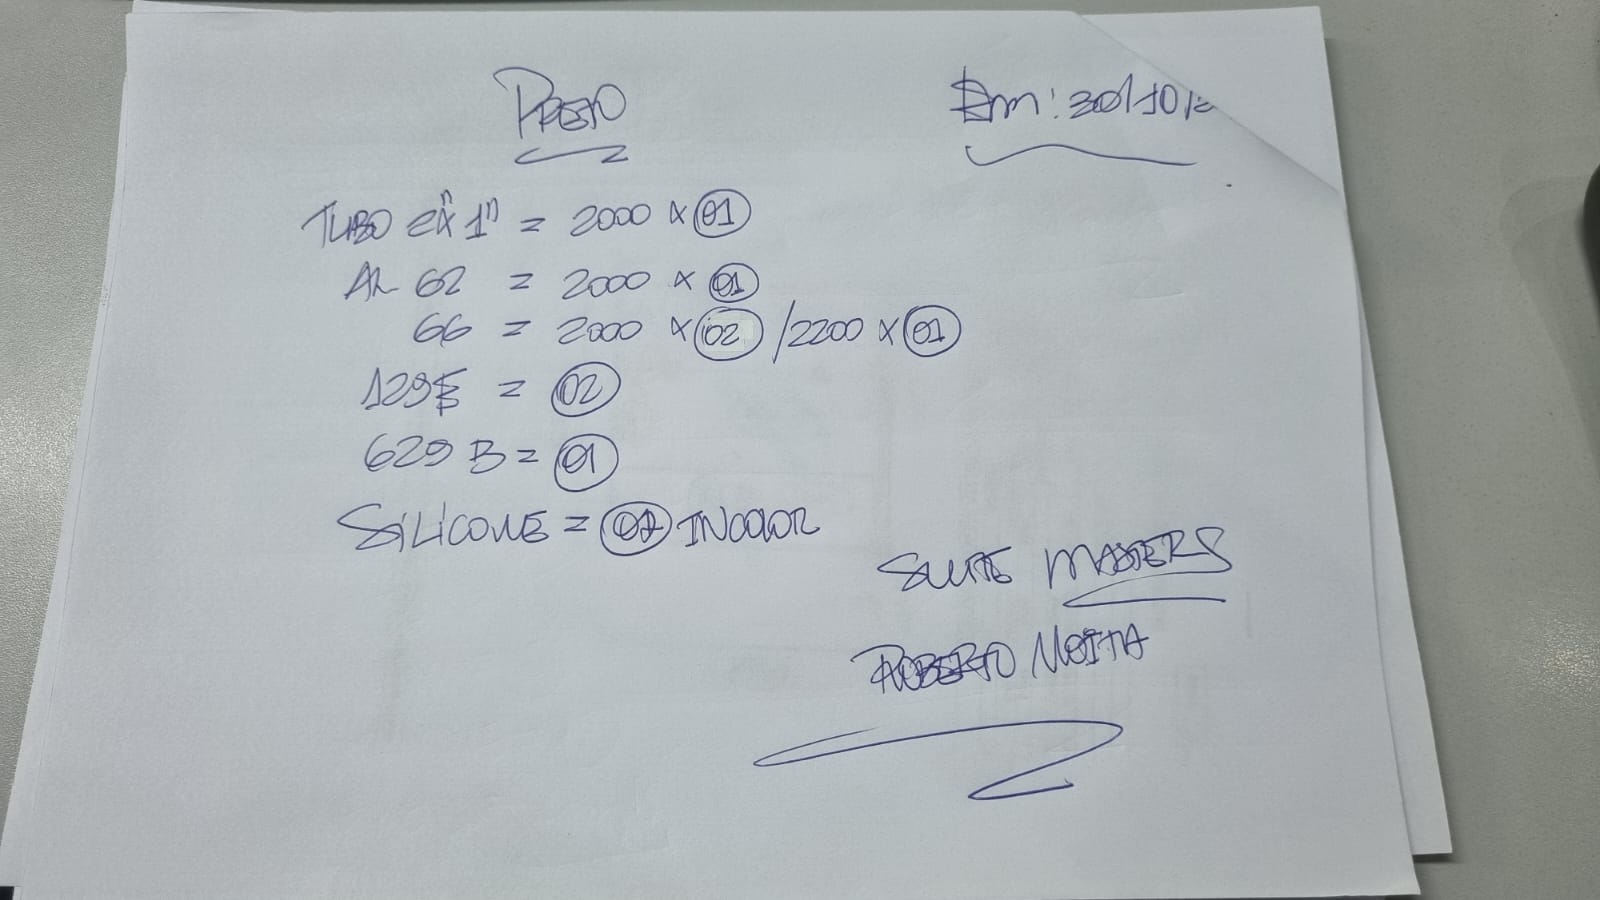 PRETO
Em: 30/10/2
TUBO 2"x1" = 2000 x 01
AL 62 = 2000 x 01
66 = 2000 x 02 / 2200 x 01
129 = 02
629 B = 01
SILICONE = 01 INCOLOR
SUITE MASTERS
ROBERTO MOITA